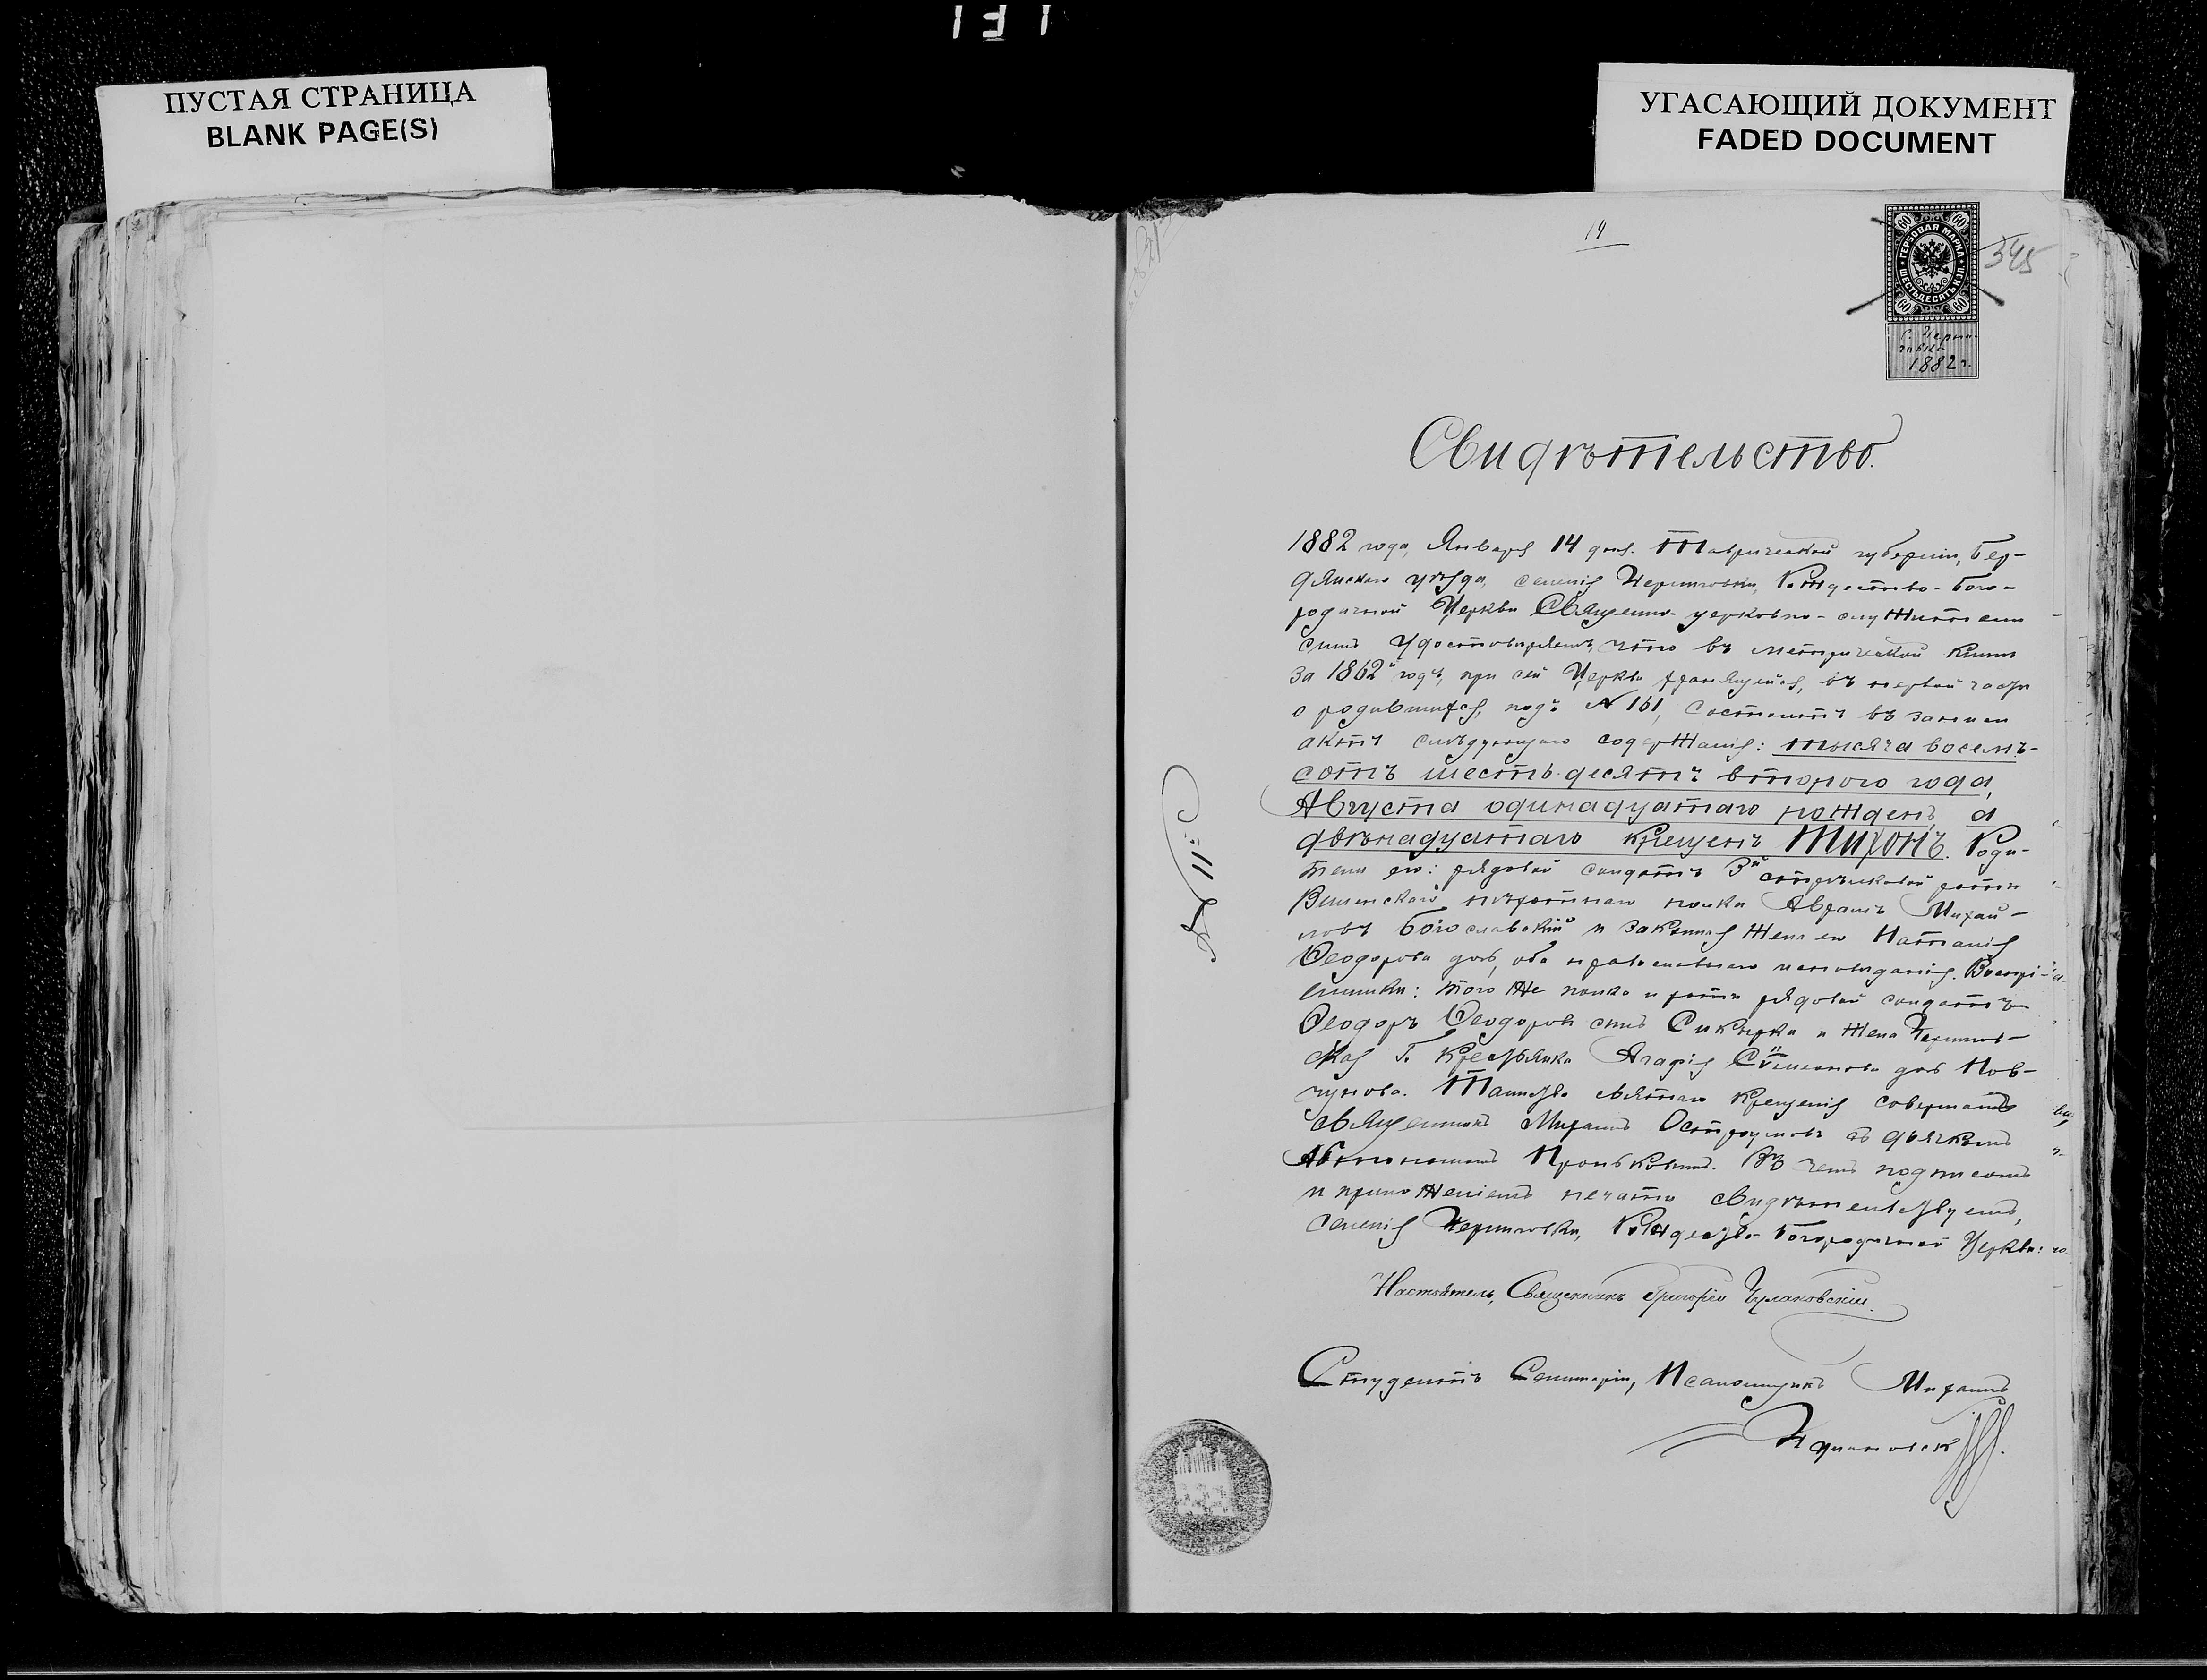 131
ПУСТАЯ СТРАНИЦА
BLANK PAGE(S)
УГАСАЮЩИЙ ДОКУМЕНТ
FADED DOCUMENT
14
345
60 60
ГЕРБОВАЯ МАРКА
ШЕСТЬДЕСЯТЪ КОП.
60 60
С. Черни-
говка
1882 г.
Свидѣтельство.
1882 года, Января 14 дня. Таврической губерніи, Бер-
дянскаго уѣзда, селенія Черниговки, Рождество-Бого-
родичной Церкви Священно-церковно-служители
симъ удостовѣряемъ, что въ метрической книгѣ
за 1862й годъ, при сей Церкви хранящейся, въ первой части
о родившихся, подъ № 161, состоитъ въ записи
актъ слѣдующаго содержанія: тысяча восемь-
сотъ шестьдесятъ второго года,
Августа одинадцатаго рожденъ, а
двѣнадцатаго крещенъ Тихонъ. Роди-
тели его: рядовой солдатъ 3й стрѣлковой роты
Виленскаго пѣхотнаго полка Авраамъ Михай-
ловъ Богославскій и законная жена его Наталія
Ѳеодорова дочь, оба православнаго исповѣданія. Воспрі-
емники: того же полка и роты рядовой солдатъ
Ѳеодоръ Ѳеодоровъ сынъ Сикирка и жена Чернигов-
ская Г. крестьянка Агафія дочь
Таинство святаго крещенія совершалъ
священникъ Михаилъ Остроумовъ съ дьячкомъ
Автономомъ Въ чемъ подписомъ
и приложеніемъ печати свидѣтельствуемъ,
селенія Черниговки, Рождество-Богородичной Церкви:
Настоятель, Священникъ Григорій
Студентъ Семинаріи, Псаломщикъ Михаилъ
№ 11й